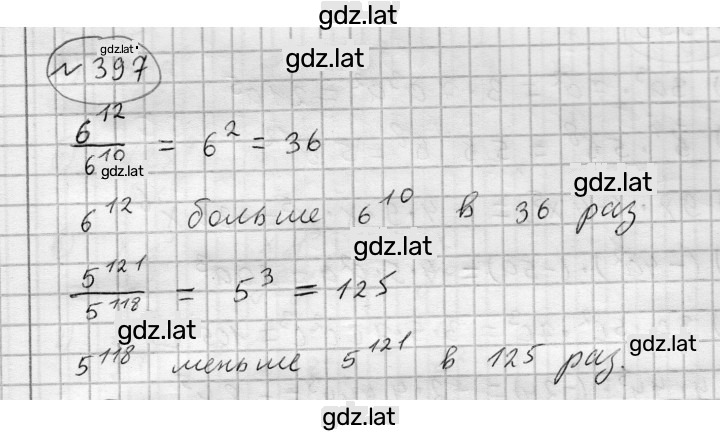 gdz.lat
gdz.lat
№ 397
gdz.lat
6^12 / 6^10 = 6^2 = 36
gdz.lat
gdz.lat
6^12 больше 6^10 в 36 раз
gdz.lat
5^121 / 5^118 = 5^3 = 125
gdz.lat
gdz.lat
5^118 меньше 5^121 в 125 раз.
gdz.lat